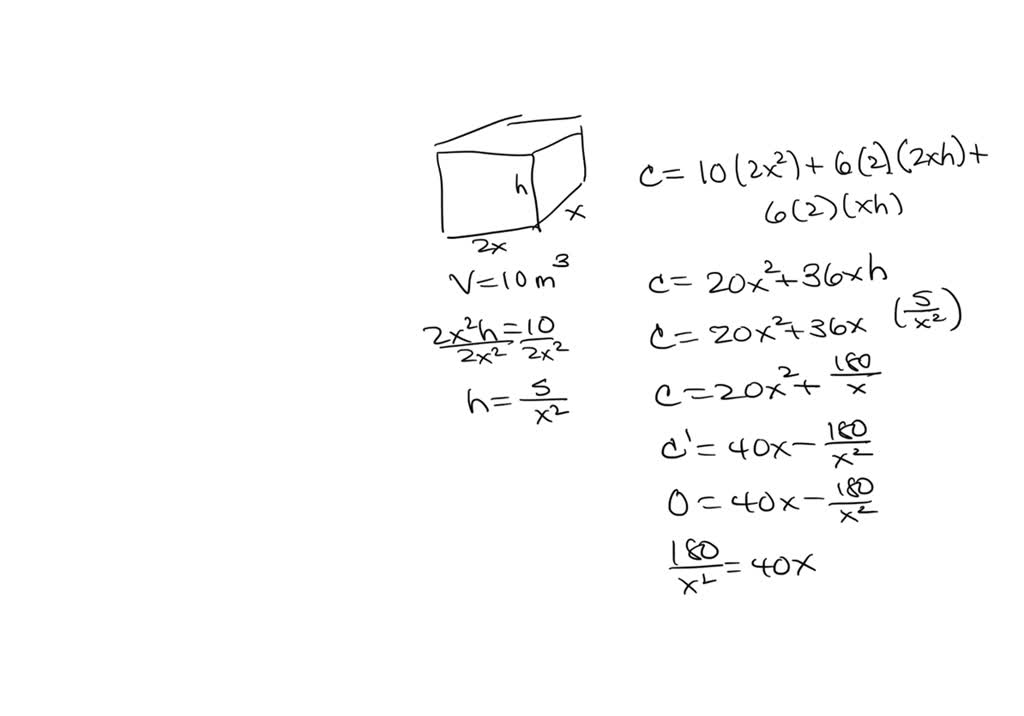 h
x
2x
V=10m³
2x²h = 10
2x² 2x²
h = 5/x²
C = 10(2x²) + 6(2)(2xh) +
6(2)(xh)
C = 20x² + 36xh
C = 20x² + 36x (5/x²)
C = 20x² + 180/x
C' = 40x - 180/x²
0 = 40x - 180/x²
180/x² = 40x